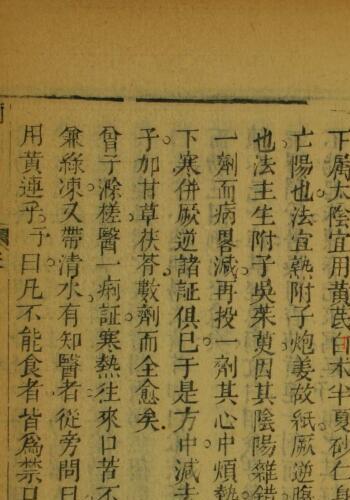 下厲太陰宜用黃芪白术半夏砂仁
亡陽也法宜熱附子炮姜故紙厥逆
也法主生附子吳茱萸因其陰陽雜錯
一劑而病畧減再投一劑其心中煩熱
下寒併厥逆諸証俱已于是方中減去
予加甘草茯苓數劑而全愈矣
曾于滁槎醫一痢証寒熱徃來口苦不
兼綠凍又帶清水有知醫者從旁問曰
用黃連乎予曰凡不能食者皆爲禁口